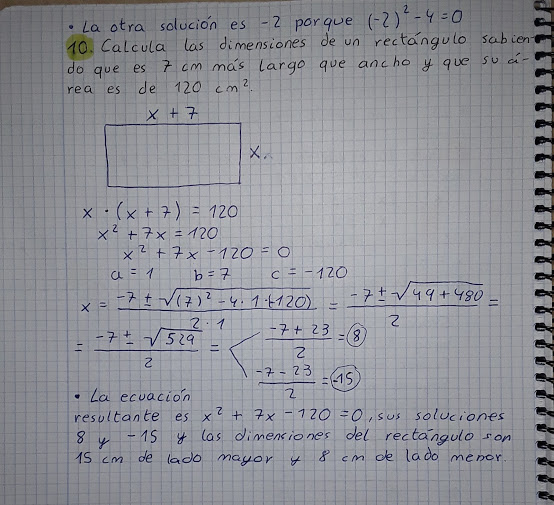 • La otra solución es -2 porque (-2)² - 4 = 0
10. Calcula las dimensiones de un rectángulo sabien-
do que es 7 cm más largo que ancho y que su á-
rea es de 120 cm².
x + 7
x.
x · (x + 7) = 120
x² + 7x = 120
x² + 7x - 120 = 0
a = 1 b = 7 c = -120
x = (-7 ± √((7)² - 4 · 1 · (-120))) / (2 · 1) = (-7 ± √(49 + 480)) / 2 =
= (-7 ± √529) / 2 = < (-7 + 23) / 2 = 8
(-7 - 23) / 2 = -15
• La ecuación
resultante es x² + 7x - 120 = 0, sus soluciones
8 y -15 y las dimensiones del rectángulo son
15 cm de lado mayor y 8 cm de lado menor.